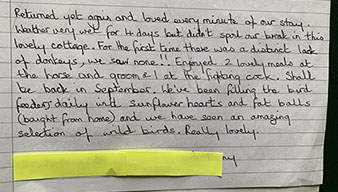 Returned yet again and loved every minute of our stay.
Weather very wet for 4 days but didn't spoil our break in this
lovely cottage. For the first time there was a distinct lack
of donkeys, we saw none!! Enjoyed 2 lovely meals at
the horse and groom & 1 at the fighting cock. Shall
be back in September. We've been filling the bird
feeders daily with sunflower hearts and fat balls
(bought from home) and we have seen an amazing
selection of wild birds. Really lovely.